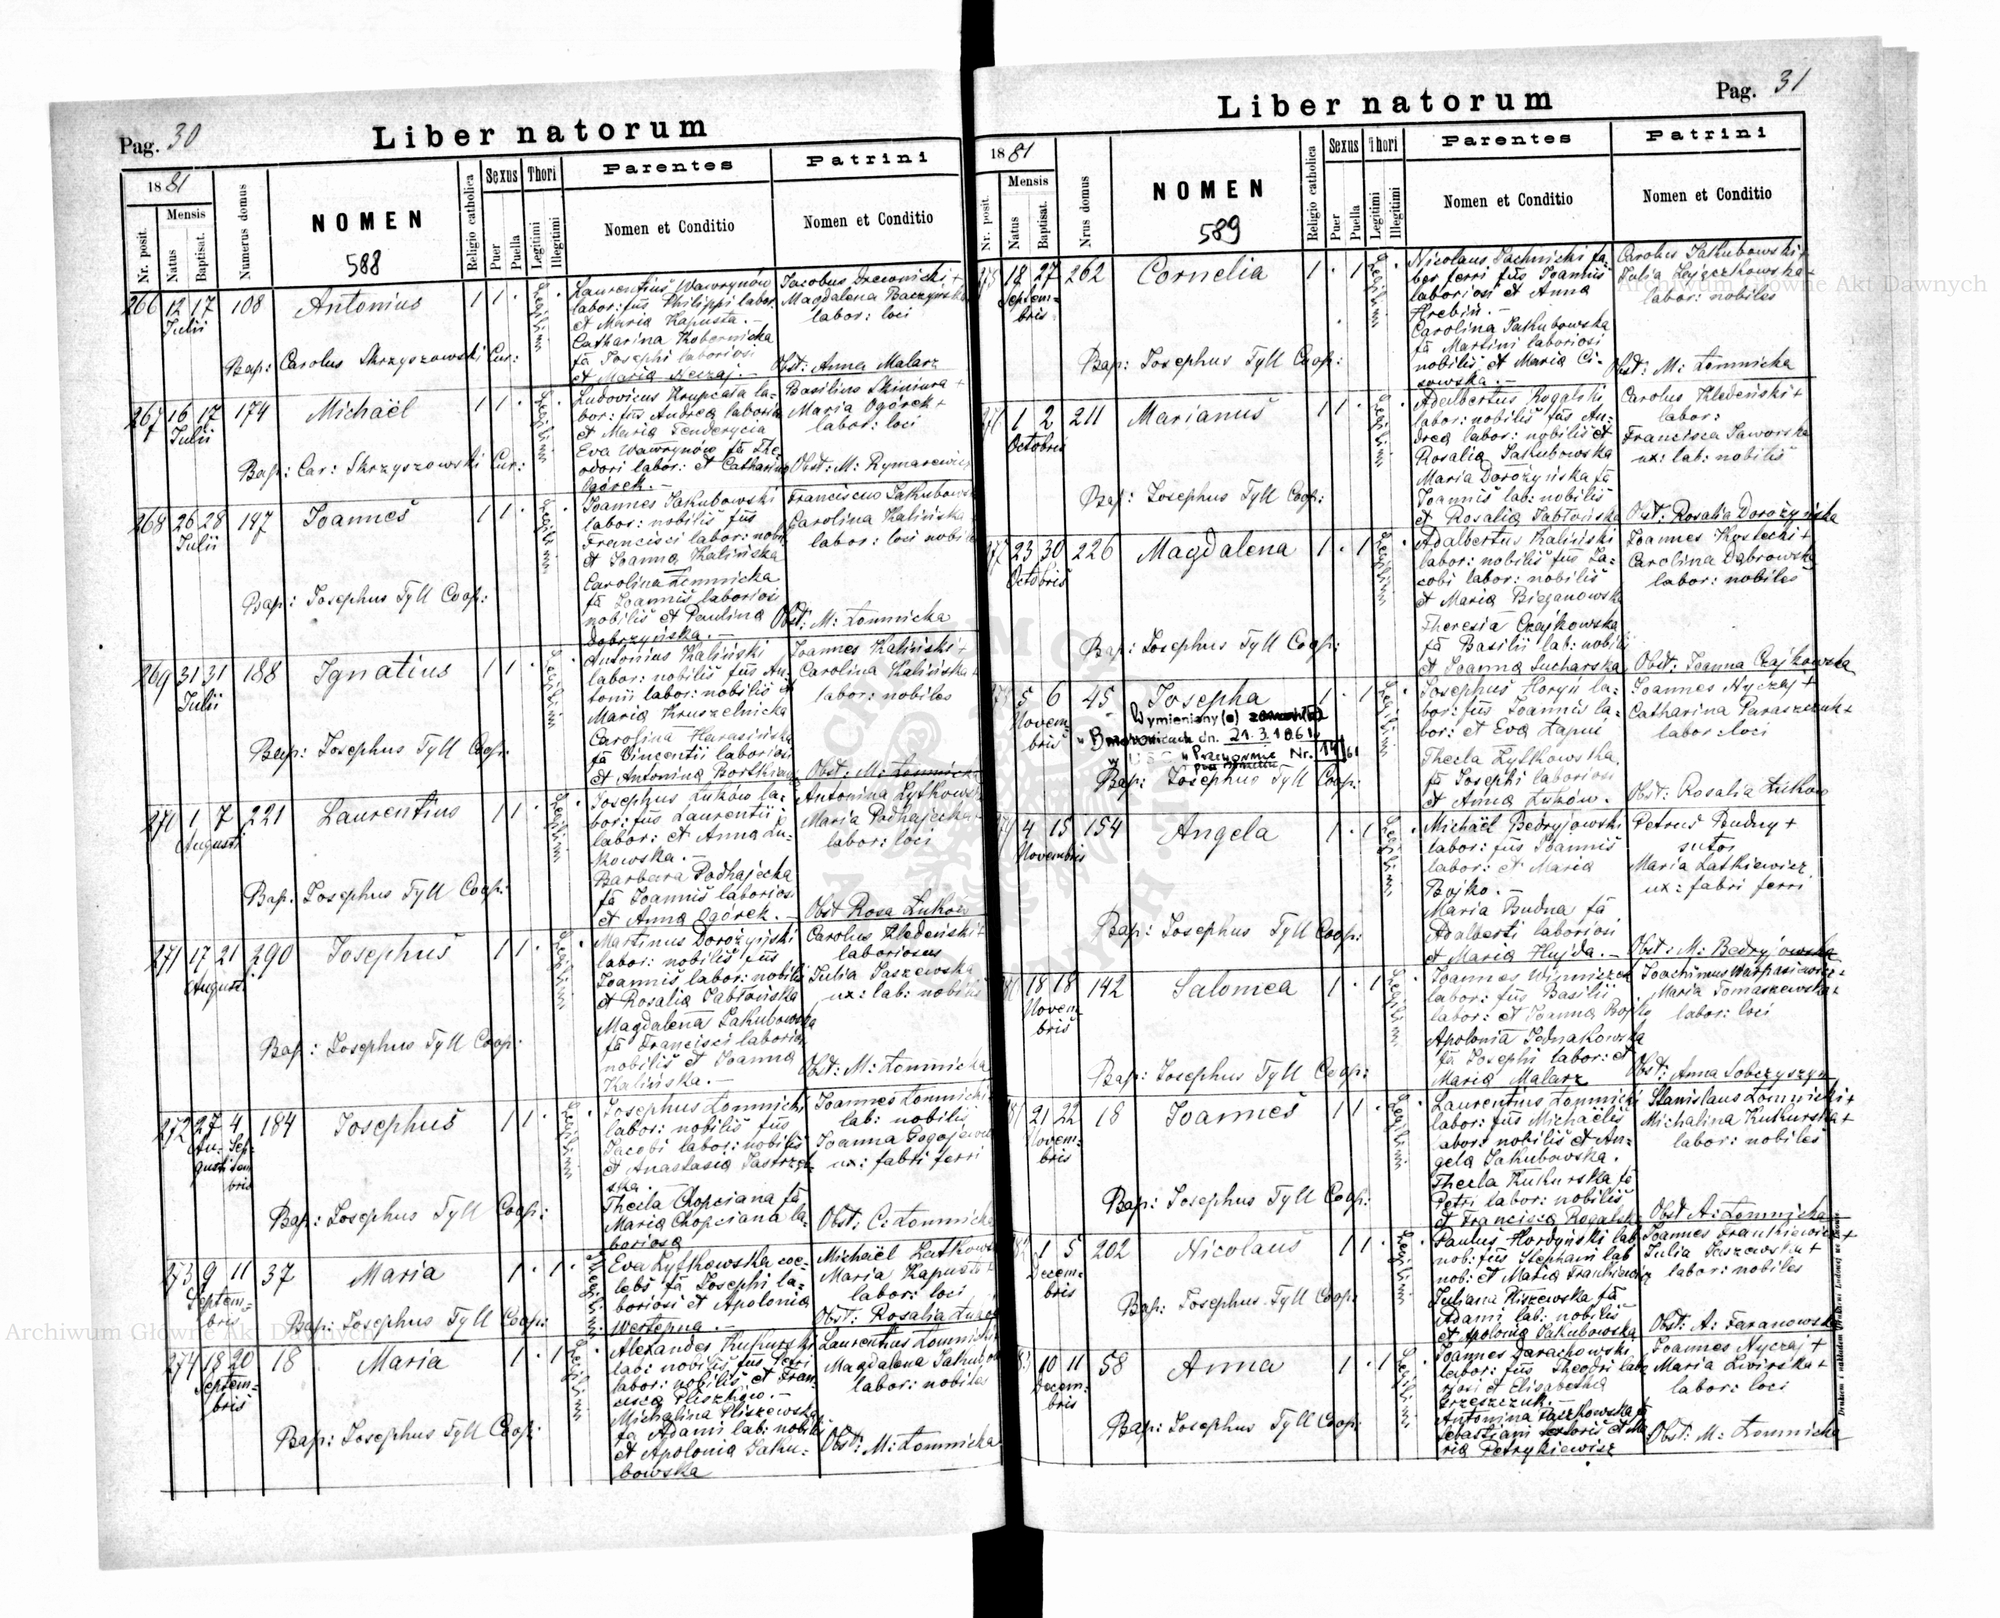 Pag. 30
Liber natorum
1881
Nr. posit.
Mensis
Natus
Baptisat.
Numerus domus
NOMEN
588
Religio catholica
Sexus
Puer
Puella
Thori
Legitimi
Illegitimi
Parentes
Nomen et Conditio
Patrini
Nomen et Conditio
266 12 17 108 Antonius 1 1 .
Julii
Laurentius Wawrynów
labor: fus Philippi labor:
et Maria Kapusta. —
Catharina Kobernicka
fa Josephi laboriosi
et Maria Neczaj. —
Magdalena Baczyńska
labor: loci
Bap: Carolus Skrzyszowski Cur:
Obst: Anna Malarz
267 16 17 174 Michaël 1 1 .
Julii
Ludovicus Krupcała la-
bor: fus Andrea laboriosi
et Maria Tenderycia
Eva Wawrynów fa The-
odori labor: et Catharina
Ogórek. —
Basilius Skiniura +
Maria Ogórek +
labor: loci
Bap: Car: Skrzyszowski Cur:
Obst: M: Rymarewicz
268 26 28 147 Joannes 1 1 .
Julii
Joannes Jakubowski
labor: nobilis fus
Francisci labor: nobil
et Joanna Kalińska
Carolina Łomnicka
fa Joannis laboriosi
nobilis et Paulina
Dobrzyńska. —
Franciscus Jakubowski
Carolina Kalińska
labor: loci nobiles
Bap: Josephus Tyll Coop:
Obst: M: Łomnicka
269 31 31 188 Ignatius 1 1 .
Julii
Antonius Kaliński
labor: nobilis fus An-
tonii labor: nobilis et
Maria Kruszelnicka
Carolina Harasińska
fa Vincentii laboriosi
et Antonina Bortkiewicz
Joannes Kaliński +
Carolina Kalińska +
labor: nobiles
Bap: Josephus Tyll Coop:
Obst: M: Łomnicka
270 1 7 221 Laurentius 1 1 .
Augusti
Josephus Łuków la-
bor: fus Laurentii
labor: et Anna Lu-
kowska. —
Barbara Podhajecka
fa Joannis laboriosi
et Anna Ogórek. —
Antonina Lytkowska
Maria Podhajecka +
labor: loci
Bap: Josephus Tyll Coop:
Obst Rosa Łuków
271 17 21 290 Josephus 1 1 .
Augusti
Martinus Dorożyński
labor: nobilis fus
Joannis labor: nobilis
et Rosalia Jabłońska
Magdalena Jakubowska
fa Francisci laboriosi
nobilis et Joanna
Kalińska. —
Carolus Kledeński +
laboriosus
Julia Jaszewska
ux: lab: nobilis
Bap: Josephus Tyll Coop:
Obst: M: Łomnicka
272 27 4 184 Josephus 1 1 .
Au- Sep-
gusti tem
bris
Josephus Łomnicki
labor: nobilis fus
Jacobi labor: nobilis
et Anastasia Jastrzęb-
ska. —
Thecla Chopciana fa
Maria Chopciana la-
boriosa
Joannes Łomnicki
lab: nobilis
Joanna Gogojewicz
ux: fabri ferri
Bap: Josephus Tyll Coop:
Obst: C: Łomnicka
273 9 11 37 Maria 1 . 1 .
Septem-
bris
Eva Lytkowska coe-
lebs fa Josephi la-
boriosi et Apolonia
Wertepna. —
Michaël Latkowski
Maria Kapusta +
labor: loci
Bap: Josephus Tyll Coop:
Obst: Rosalia Łuków
274 18 20 18 Maria 1 . 1
Septem-
bris
Alexander Kukurski
lab: nobilis fus Petri
labor: nobilis et Fran-
cisca Pliszków. —
Michalina Pliszewska
fa Adami lab: nobilis
et Apolonia Jaku-
bowska
Laurentius Łomnicki
Magdalena Jakubowska
labor: nobiles
Bap: Josephus Tyll Coop:
Obst: M: Łomnicka
Liber natorum
Pag. 31
1881
Nr. posit.
Mensis
Natus
Baptisat.
Nrus domus
NOMEN
589
Religio catholica
Sexus
Puer
Puella
Thori
Legitimi
Illegitimi
Parentes
Nomen et Conditio
Patrini
Nomen et Conditio
275 18 27 262 Cornelia 1 . 1
Septem-
bris
Nicolaus Pachnicki fa
ber ferri fus Joannis
laboriosi et Anna
Hrebin. —
Carolina Jakubowska
fa Martini laboriosi
nobilis et Maria Ci-
sowska. —
Carolus Jakubowski +
Julia Zajęczkowska +
labor: nobiles
Bap: Josephus Tyll Coop:
Obst: M: Łomnicka
276 1 2 211 Marianus 1 1 .
Octobris
Adalbertus Rogalski
labor: nobilis fus An-
drea labor: nobilis et
Rosalia Jakubowska
Maria Dorożyńska fa
Joannis lab: nobilis
et Rosalia Jabłońska
Carolus Kledeński +
labor:
Francisca Jaworska
ux: lab: nobilis
Bap: Josephus Tyll Coop:
Obst: Rosalia Dorożyńska
277 23 30 226 Magdalena 1 . 1
Octobris
Adalbertus Kaliński
labor: nobilis fus Ja-
cobi labor: nobilis
et Maria Bieganowska
Theresia Czajkowska
fa Basilii lab: nobilis
et Joanna Sucharska
Joannes Kostecki +
Carolina Dąbrowska
labor: nobiles
Bap: Josephus Tyll Coop:
Obst: Joanna Czajkowska
278 5 6 45 Josepha 1 . 1
Novem
bris
Wymieniony(a)
dn. 21.3.1961
Nr. 14/61
Josephus Horyń la-
bor: fus Joannis la-
bor: et Eva Łapuć
Thecla Lytkowska
fa Josephi laboriosi
et Anna Łuków.
Joannes Nyczaj +
Catharina Paraszczuk +
labor: loci
Bap: Josephus Tyll Coop:
Obst: Rosalia Łuków
279 4 15 154 Angela 1 . 1
Novembris
Michaël Bedryjowski
labor: fus Joannis
labor: et Maria
Bojko. —
Maria Budna fa
Adalberti laboriosi
et Maria Hujda. —
Petrus Budny +
sutor
Maria Latkiewicz
ux: fabri ferri
Bap: Josephus Tyll Coop:
Obst: M: Bedryjowska
280 18 18 142 Salomea 1 . 1
Novem
bris
Joannes Winniczek
labor: fus Basilii
labor: et Joanna Bojko
Apolonia Jednakowska
fa Josephi labor: et
Maria Malarz
Maria Tomaszewska +
labor: loci
Bap: Josephus Tyll Coop:
Obst: Anna Sobczyszyn
281 21 22 18 Joannes 1 1 .
Novem-
bris
Laurentius Łomnicki
labor: fus Michaëlis
labor: nobilis et An-
gela Jakubowska.
Thecla Kukurska fa
Petri labor: nobilis
et Francisca Rogalska
Stanislaus Łomnicki +
Michalina Kukurska +
labor: nobiles
Bap: Josephus Tyll Coop:
Obst A: Łomnicka
282 1 5 202 Nicolaus 1 1 .
Decem-
bris
Paulus Hordyński lab:
nob: fus Stephani lab
nob: et Maria Frankiewicz
Juliana Kiszewska fa
Adami lab: nobilis
et Apolonia Jakubowska
Joannes Frankiewicz +
Julia Jaszewska +
labor: nobiles
Bap: Josephus Tyll Coop:
Obst: A: Taranowska
283 10 11 58 Anna 1 . 1
Decem-
bris
Joannes Darachowski
labor: fus Theodri labo
riosi et Elisabetha
Grzeszczuk. —
Antonina Paczkowska fa
Sebastiani sartoris et Ma
ria Petrykiewicz
Joannes Nyczaj +
Maria Zwirska +
labor: loci
Bap: Josephus Tyll Coop:
Obst: M: Łomnicka
Archiwum Główne Akt Dawnych
Archiwum Główne Akt Dawnych